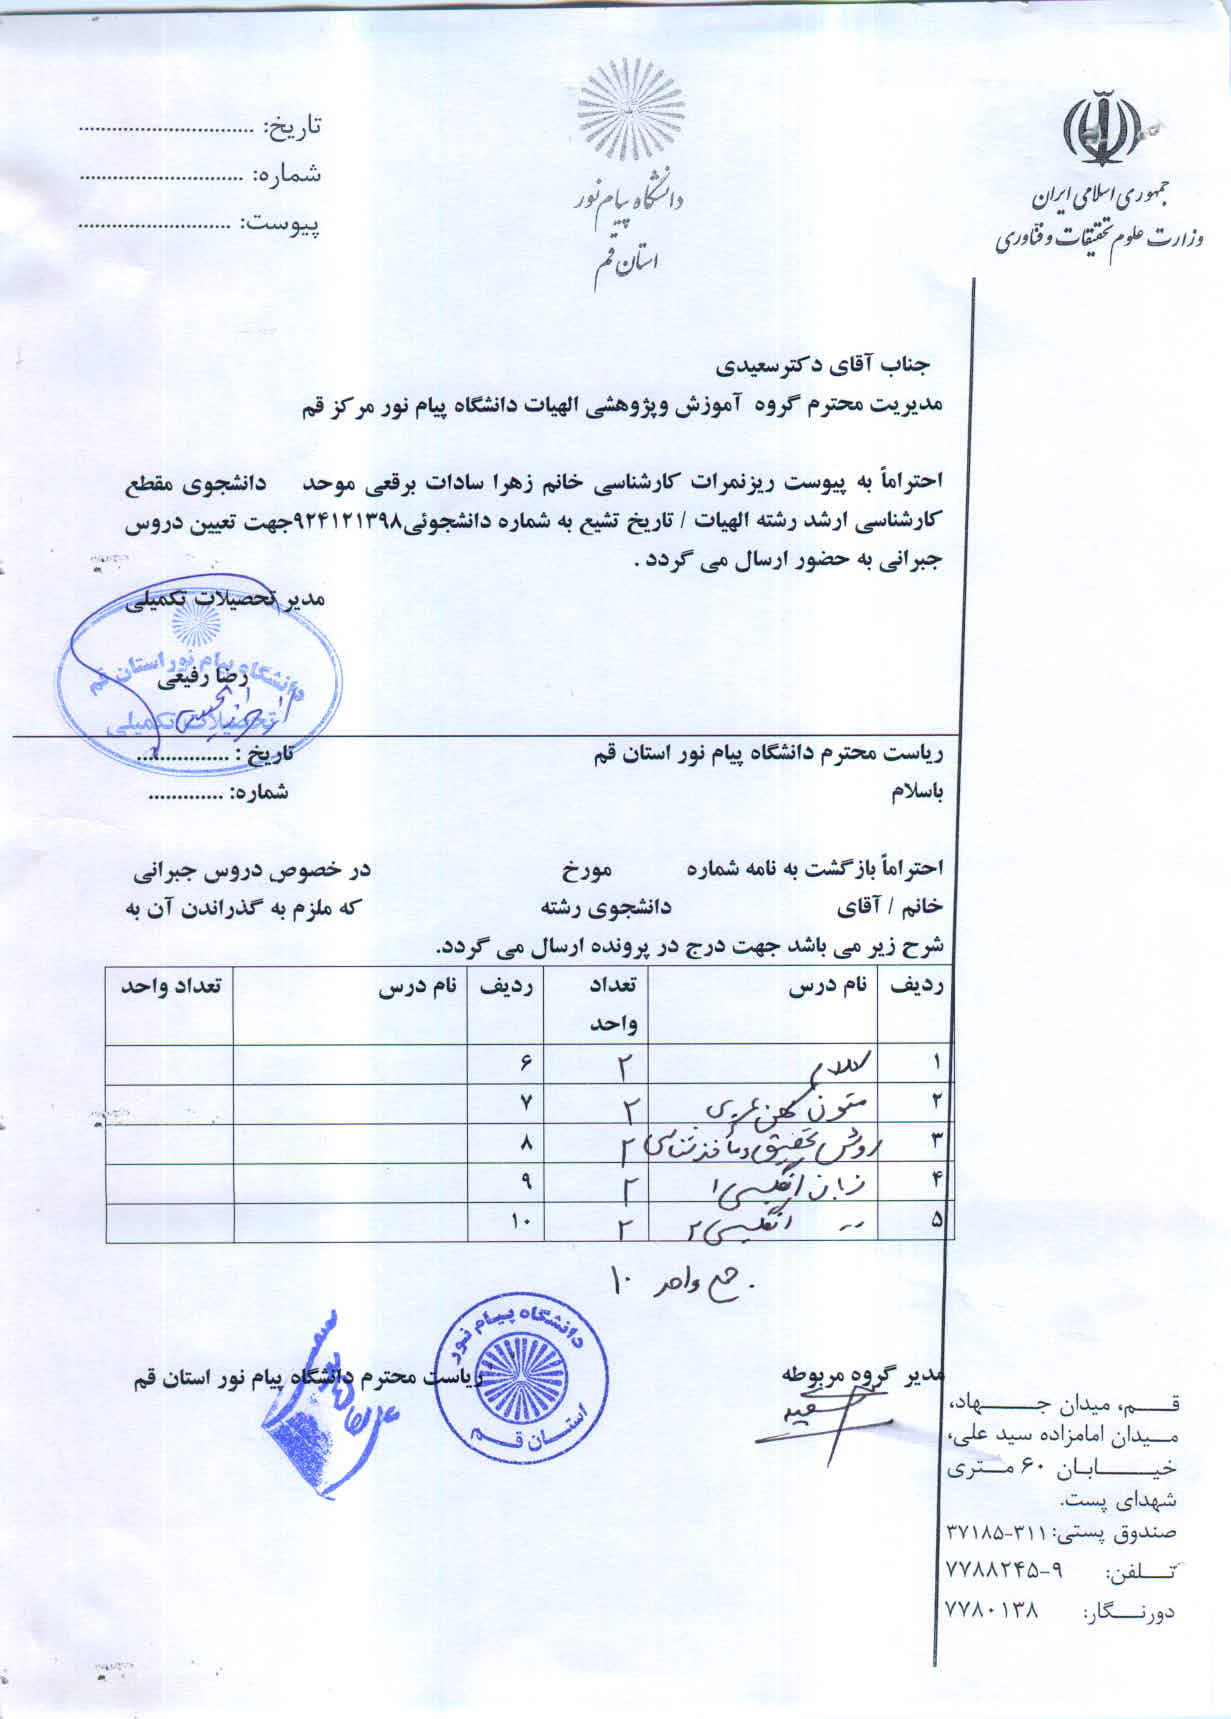 جمهوری اسلامی ایران
وزارت علوم تحقیقات و فناوری
دانشگاه پیام نور
استان قم
تاریخ: ..............................
شماره: ............................
پیوست: ..........................
جناب آقای دکترسعیدی
مدیریت محترم گروه آموزش وپژوهشی الهیات دانشگاه پیام نور مرکز قم
احتراماً به پیوست ریزنمرات کارشناسی خانم زهرا سادات برقعی موحد دانشجوی مقطع
کارشناسی ارشد رشته الهیات / تاریخ تشیع به شماره دانشجوئی۹۲۴۱۲۱۳۹۸جهت تعیین دروس
جبرانی به حضور ارسال می گردد .
مدیر تحصیلات تکمیلی
رضا رفیعی
دانشگاه پیام نور استان قم
تحصیلات تکمیلی
ریاست محترم دانشگاه پیام نور استان قم
تاریخ : ...............
باسلام
شماره: .............
احتراماً بازگشت به نامه شماره مورخ در خصوص دروس جبرانی
خانم / آقای دانشجوی رشته که ملزم به گذراندن آن به
شرح زیر می باشد جهت درج در پرونده ارسال می گردد.
ردیف نام درس تعداد واحد ردیف نام درس تعداد واحد
۱ کلام ۲ ۶
۲ متون کهن عربی ۲ ۷
۳ روش تحقیق و مأخذشناسی ۲ ۸
۴ زبان انگلیسی ۱ ۲ ۹
۵ 〃 انگلیسی ۲ ۲ ۱۰
جمع واحد ۱۰
مدیر گروه مربوطه
ریاست محترم دانشگاه پیام نور استان قم
دانشگاه پیام نور
استان قم
قم، میدان جهاد،
میدان امامزاده سید علی،
خیابان ۶۰ متری
شهدای پست.
صندوق پستی: ۳۱۱-۳۷۱۸۵
تلفن: ۹-۷۷۸۸۲۴۵
دورنگار: ۷۷۸۰۱۳۸